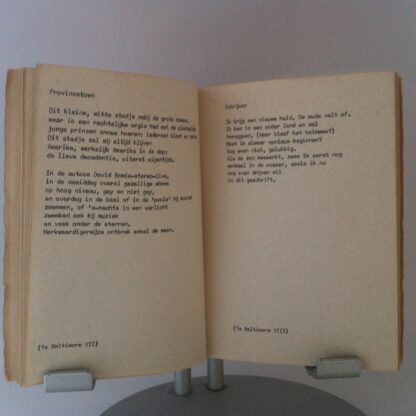 Provincetown
Dit kleine, witte stadje nabij de grote oceaan,
waar ik een nachtelijke orgie had met de plaatselijke
jonge prinsen annex hoeren: iedereen kust en
Dit stadje zal mij altijd blijven
Amerika, werkelijk Amerika in de dop:
de lieve decadentie, uiterst eigentijds.
In de autoos David Bowie-stereo-live,
in de namiddag overal gezellige shows
op hoog niveau, gay en niet gay,
en overdag in de baai of in de 'pools' bij muziek
zwemmen, of 's-nachts in een verlicht
zwembad ook bij muziek
en vaak onder de sterren,
Merkwaardigerwijze ontbrak enkel de maan.
(Te Baltimore VII)
Schrijven
Ik krijg een nieuwe huid. De oude valt af.
Ik ben in een ander land en zal
teruggaan. (Waar bleef het heimwee?)
Moet ik alweer opnieuw beginnen?
Nog even niet, gelukkig.
Als de zon meewerkt, zwem ik eerst nog
eenmaal in de oceaan, zoals ik nu
nog even drijven wil
in dit geschrift.
(Te Baltimore VIII)